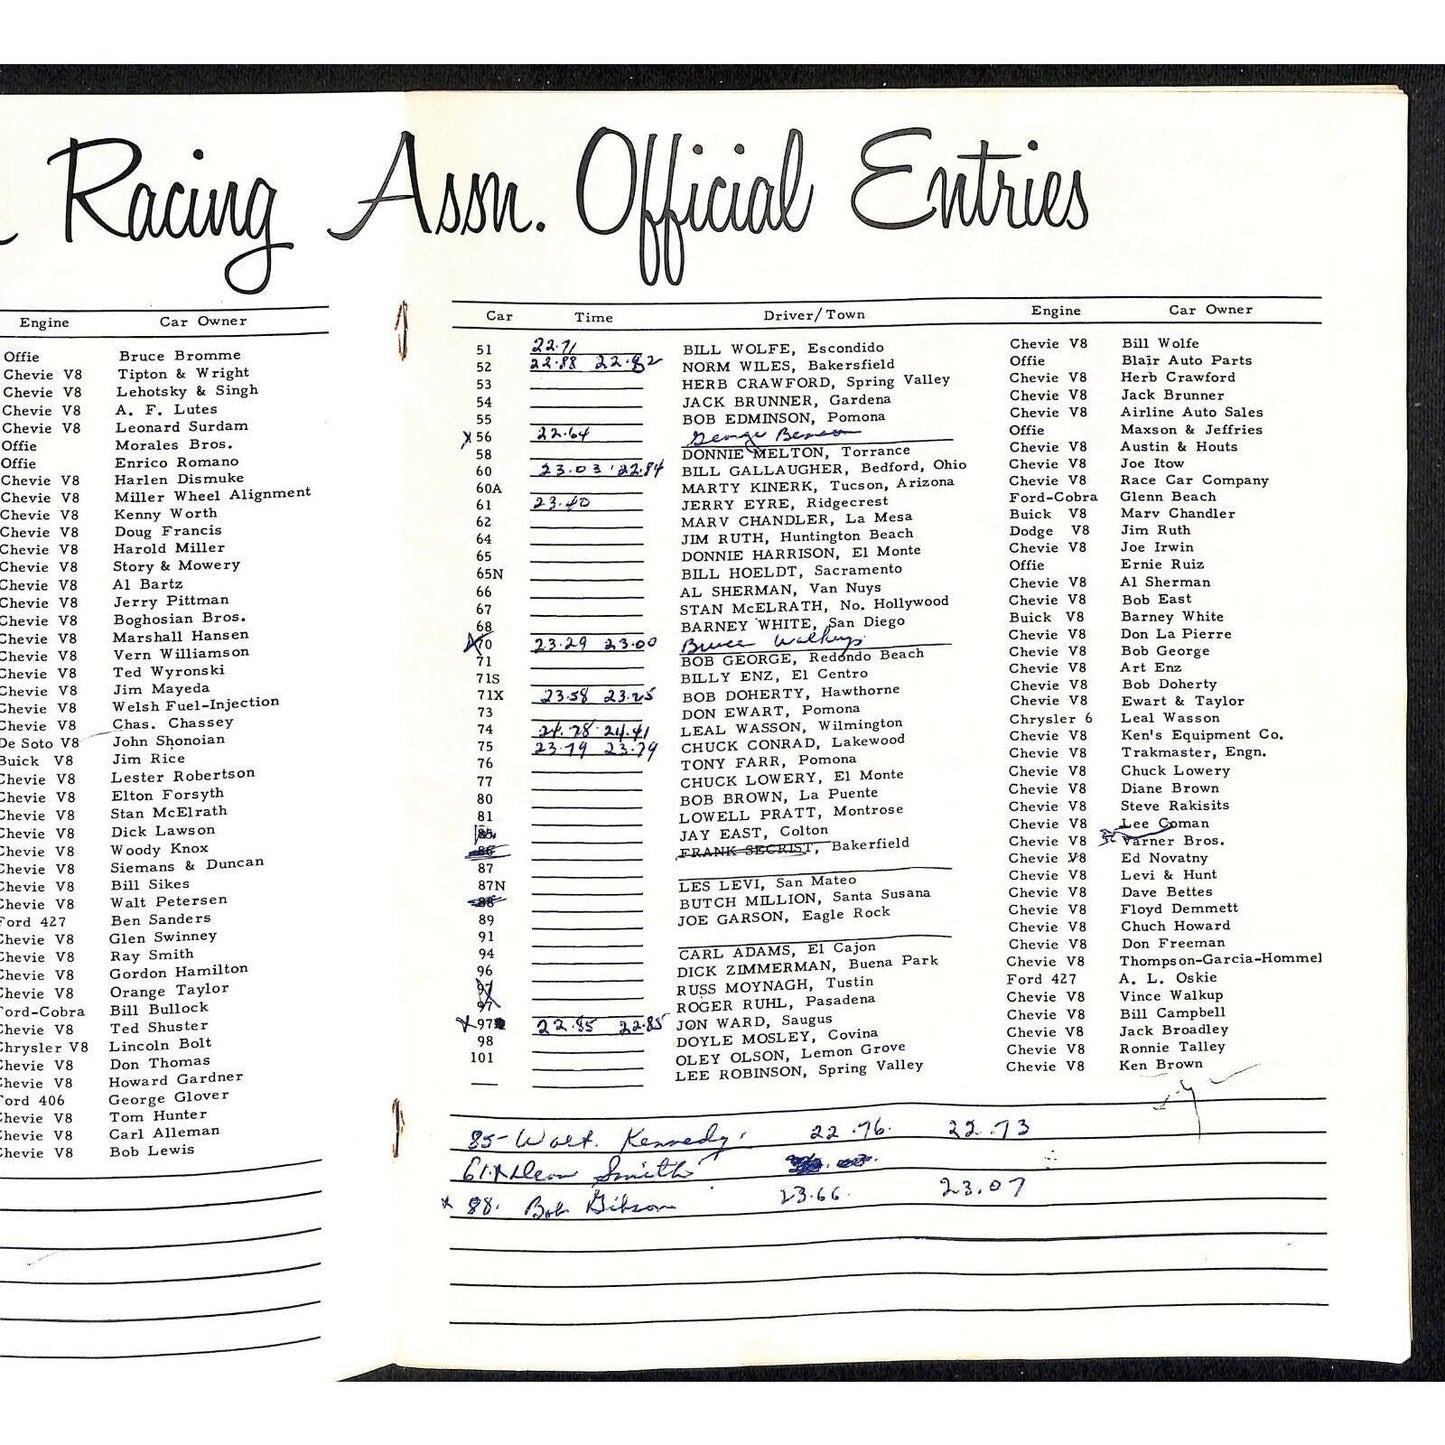 Racing Assn. Official Entries
Engine Car Owner
Offie Bruce Bromme
Chevie V8 Tipton & Wright
Chevie V8 Lehotsky & Singh
Chevie V8 A. F. Lutes
Chevie V8 Leonard Surdam
Offie Morales Bros.
Offie Enrico Romano
Chevie V8 Harlen Dismuke
Chevie V8 Miller Wheel Alignment
Chevie V8 Kenny Worth
Chevie V8 Doug Francis
Chevie V8 Harold Miller
Chevie V8 Story & Mowery
Chevie V8 Al Bartz
Chevie V8 Jerry Pittman
Chevie V8 Boghosian Bros.
Chevie V8 Marshall Hansen
Chevie V8 Vern Williamson
Chevie V8 Ted Wyronski
Chevie V8 Jim Mayeda
Chevie V8 Welsh Fuel-Injection
Chevie V8 Chas. Chassey
De Soto V8 John Shonoian
Buick V8 Jim Rice
Chevie V8 Lester Robertson
Chevie V8 Elton Forsyth
Chevie V8 Stan McElrath
Chevie V8 Dick Lawson
Chevie V8 Woody Knox
Chevie V8 Siemans & Duncan
Chevie V8 Bill Sikes
Chevie V8 Walt Petersen
Ford 427 Ben Sanders
Chevie V8 Glen Swinney
Chevie V8 Ray Smith
Chevie V8 Gordon Hamilton
Chevie V8 Orange Taylor
Ford-Cobra Bill Bullock
Chevie V8 Ted Shuster
Chrysler V8 Lincoln Bolt
Chevie V8 Don Thomas
Chevie V8 Howard Gardner
Ford 406 George Glover
Chevie V8 Tom Hunter
Chevie V8 Carl Alleman
Chevie V8 Bob Lewis
Car Time Driver/Town Engine Car Owner
51 22.71 BILL WOLFE, Escondido Chevie V8 Bill Wolfe
52 22.88 22.82 NORM WILES, Bakersfield Offie Blair Auto Parts
53 HERB CRAWFORD, Spring Valley Chevie V8 Herb Crawford
54 JACK BRUNNER, Gardena Chevie V8 Jack Brunner
55 BOB EDMINSON, Pomona Chevie V8 Airline Auto Sales
x 56 22.64 George Benson Offie Maxson & Jeffries
58 DONNIE MELTON, Torrance Chevie V8 Austin & Houts
60 23.03 22.84 BILL GALLAUGHER, Bedford, Ohio Chevie V8 Joe Itow
60A MARTY KINERK, Tucson, Arizona Chevie V8 Race Car Company
61 23.40 JERRY EYRE, Ridgecrest Ford-Cobra Glenn Beach
62 MARV CHANDLER, La Mesa Buick V8 Marv Chandler
64 JIM RUTH, Huntington Beach Dodge V8 Jim Ruth
65 DONNIE HARRISON, El Monte Chevie V8 Joe Irwin
65N BILL HOELDT, Sacramento Offie Ernie Ruiz
66 AL SHERMAN, Van Nuys Chevie V8 Al Sherman
67 STAN McELRATH, No. Hollywood Chevie V8 Bob East
68 BARNEY WHITE, San Diego Buick V8 Barney White
x 70 23.29 23.00 Bruce Walkup Chevie V8 Don La Pierre
71 BOB GEORGE, Redondo Beach Chevie V8 Bob George
71S BILLY ENZ, El Centro Chevie V8 Art Enz
71X 23.58 23.25 BOB DOHERTY, Hawthorne Chevie V8 Bob Doherty
73 DON EWART, Pomona Chevie V8 Ewart & Taylor
74 24.78 24.41 LEAL WASSON, Wilmington Chrysler 6 Leal Wasson
75 23.79 23.79 CHUCK CONRAD, Lakewood Chevie V8 Ken's Equipment Co.
76 TONY FARR, Pomona Chevie V8 Trakmaster, Engn.
77 CHUCK LOWERY, El Monte Chevie V8 Chuck Lowery
80 BOB BROWN, La Puente Chevie V8 Diane Brown
81 LOWELL PRATT, Montrose Chevie V8 Steve Rakisits
85 JAY EAST, Colton Chevie V8 Lee Coman
86 FRANK SECRIST, Bakerfield Chevie V8 Varner Bros.
87 Chevie V8 Ed Novatny
87N LES LEVI, San Mateo Chevie V8 Levi & Hunt
88 BUTCH MILLION, Santa Susana Chevie V8 Dave Bettes
89 JOE GARSON, Eagle Rock Chevie V8 Floyd Demmett
91 Chevie V8 Chuch Howard
94 CARL ADAMS, El Cajon Chevie V8 Don Freeman
96 DICK ZIMMERMAN, Buena Park Chevie V8 Thompson-Garcia-Hommel
97 RUSS MOYNAGH, Tustin Ford 427 A. L. Oskie
97 ROGER RUHL, Pasadena Chevie V8 Vince Walkup
x 97 22.85 22.85 JON WARD, Saugus Chevie V8 Bill Campbell
98 DOYLE MOSLEY, Covina Chevie V8 Jack Broadley
101 OLEY OLSON, Lemon Grove Chevie V8 Ronnie Talley
LEE ROBINSON, Spring Valley Chevie V8 Ken Brown
85- Walt. Kennedy. 22.76. 22.73
61 Dean Smith
x 88. Bob Gibson 23.66. 23.07